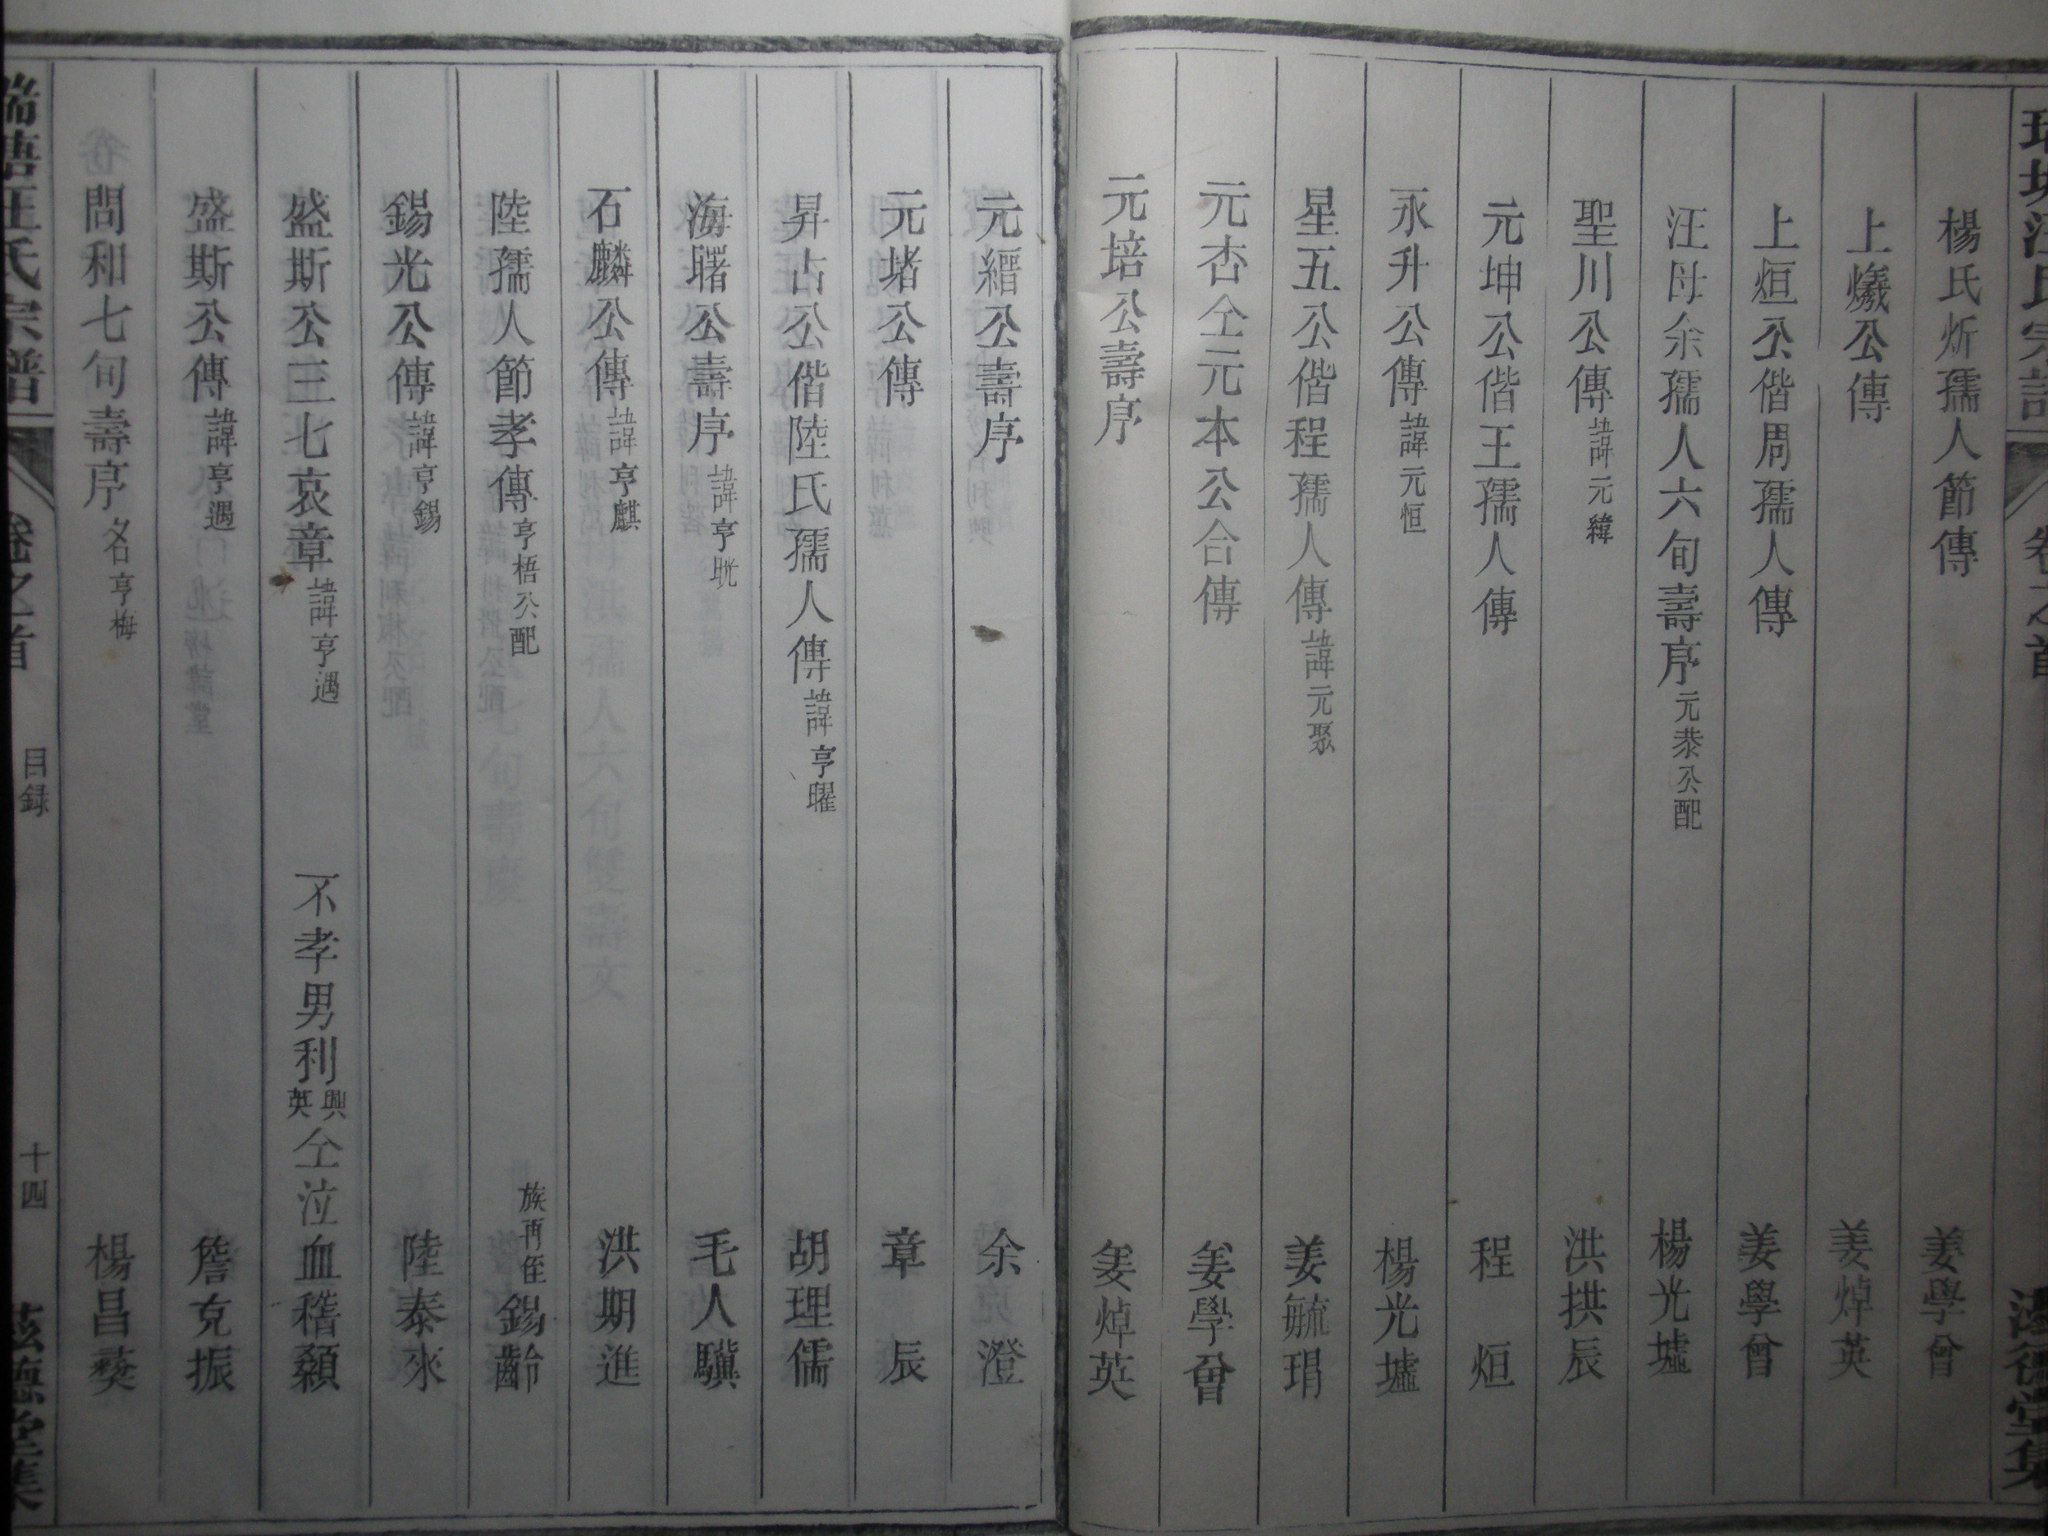 楊氏炘孺人節傳　姜學曾
上爔公傳　姜焯英
上烜公偕周孺人傳　姜學曾
汪母余孺人六旬壽序元恭公配　楊光墟
聖川公傳諱元緯　洪拱辰
元坤公偕王孺人傳　程烜
永升公傳諱元恒　楊光墟
星五公偕程孺人傳諱元聚　姜毓琄
元杏仝元本公合傳　姜學曾
元培公壽序　姜焯英
元縉公壽序　余澄
元堵公傳　章辰
昇占公偕陸氏孺人傳諱亨曜　胡理儒
海曙公壽序諱亨晄　毛人驥
石麟公傳諱亨麒　洪期進
陸孺人節孝傳亨梧公配　族再侄錫齡
錫光公傳諱亨錫　陸泰來
盛斯公三七哀章諱亨遇　不孝男利興英仝泣血稽顙
盛斯公傳諱亨遇　詹克振
問和七旬壽序名亨梅　楊昌燹
汪氏宗譜　卷之首　目録　十四　德堂集